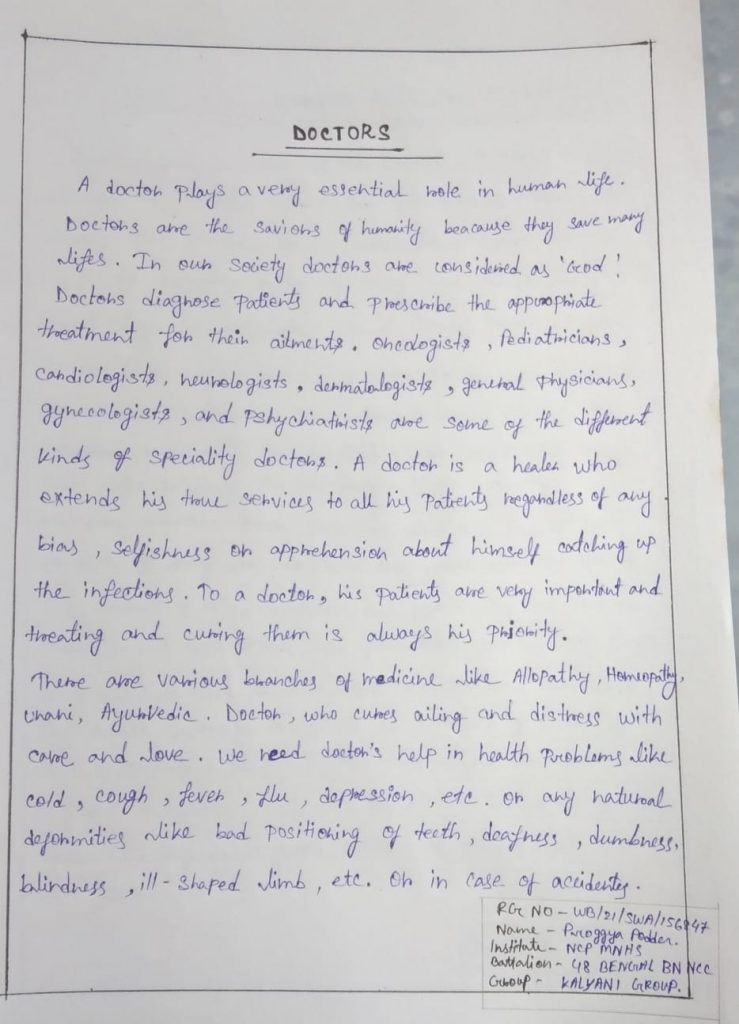 DOCTORS
A doctor plays a very essential role in human life.
Doctors are the saviors of humanity beacause they save many
lifes. In our society doctors are considered as 'God'!
Doctors diagnose patients and prescribe the appropriate
treatment for their ailments. Oncologists, Pediatricians,
Cardiologists, neurologists, dermatologists, general physicians,
gynecologists, and Pshychiatrists are some of the different
kinds of speciality doctors. A doctor is a healer who
extends his true services to all his patients regardless of any
bias, selfishness or apprehension about himself catching up
the infections. To a doctor, his patients are very important and
treating and curing them is always his priority.
There are various branches of medicine like Allopathy, Homeopathy,
Unani, Ayurvedic. Doctor, who cures ailing and distress with
care and love. We need doctor's help in health problems like
cold, cough, fever, flu, depression, etc. or any natural
deformities like bad positioning of teeth, deafness, dumbness,
blindness, ill-shaped limb, etc. Or in case of accidents.
RG NO - WB/21/SWA/156847
Name - Proggya Podder.
Institute - NCP MNHS
Battalion - 48 BENGAL BN NCC
Group - KALYANI GROUP.